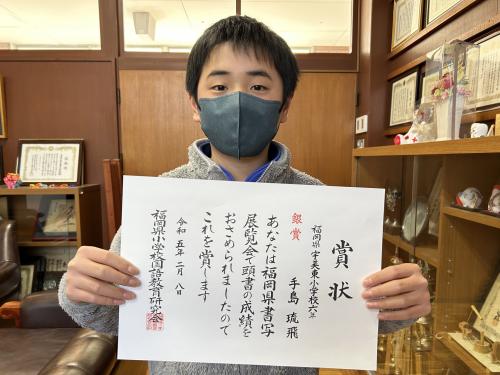 賞状
福岡県宇美東小学校六年
手島琉飛
銀賞
あなたは福岡県書写
展覧会で頭書の成績を
おさめられましたので
これを賞します
令和五年二月八日
福岡県小学校国語教育研究会